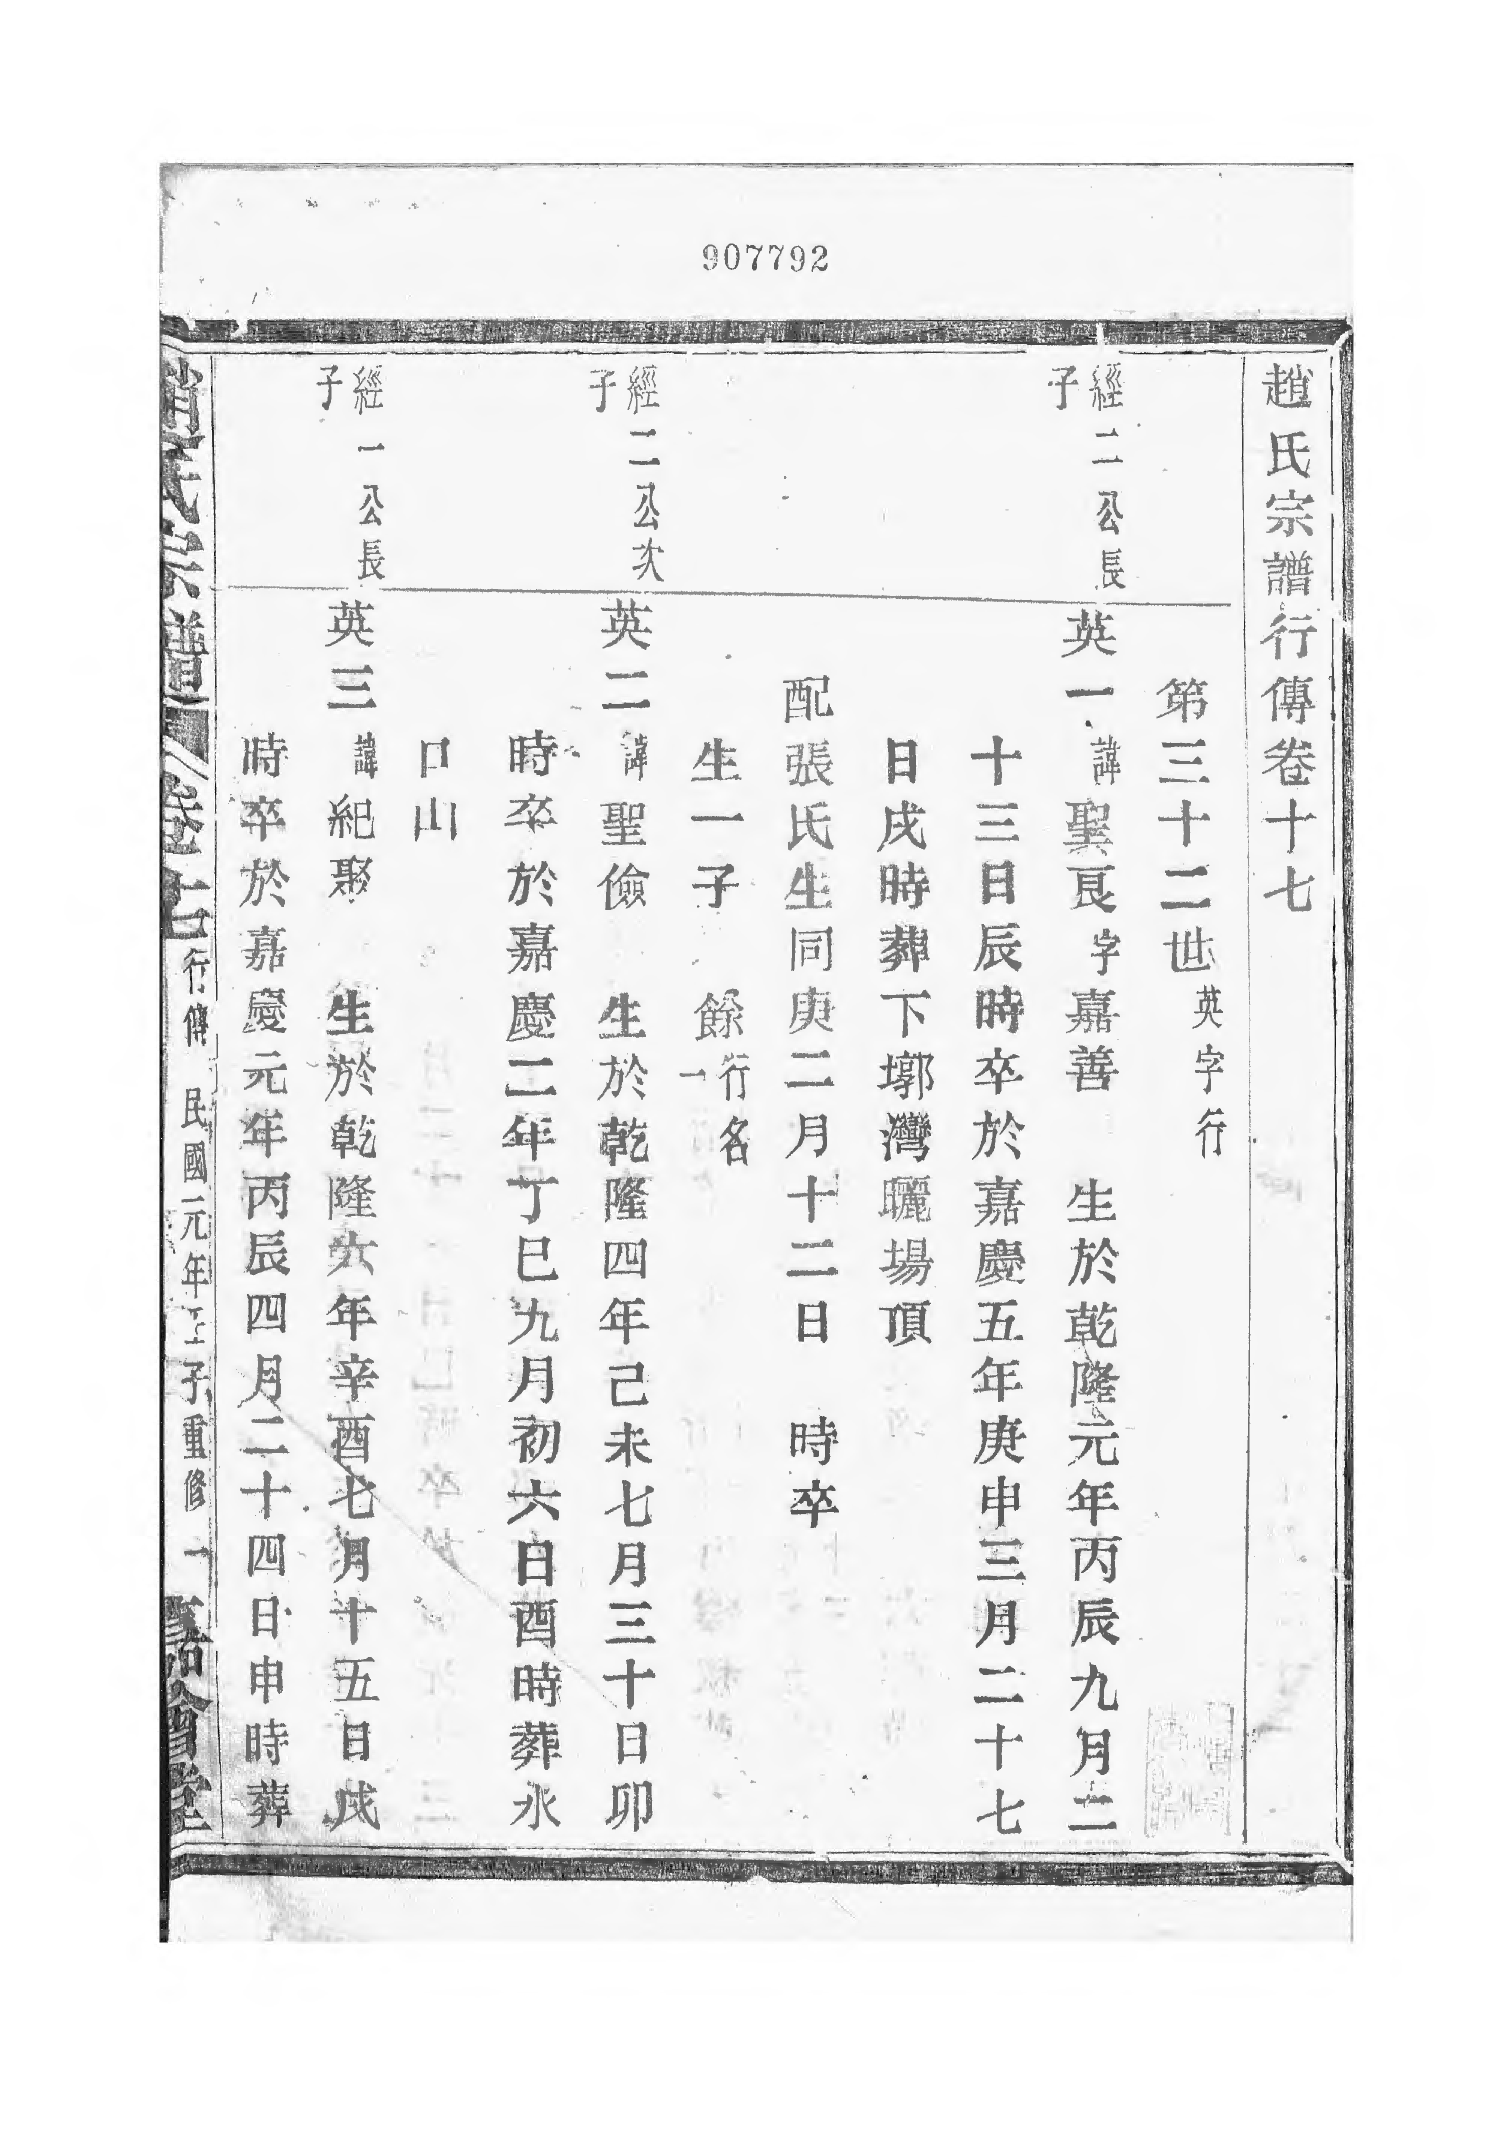 907792
趙氏宗譜行傳卷十七
第三十二世英字行
經二公長子
英一諱聖良字嘉善 生於乾隆元年丙辰九月二
十三日辰時卒於嘉慶五年庚申三月二十七
日戌時葬下墎灣曬場頂
配張氏生同庚二月十二日 時卒
生一子 餘一行名
經二公次子
英二諱聖儉 生於乾隆四年己未七月三十日卯
時卒於嘉慶二年丁巳九月初六日酉時葬水
口山
經一公長子
英三諱紀聚 生於乾隆六年辛酉七月十五日戌
時卒於嘉慶元年丙辰四月二十四日申時葬
趙氏宗譜 卷十七 行傳 民國元年壬子重修 一